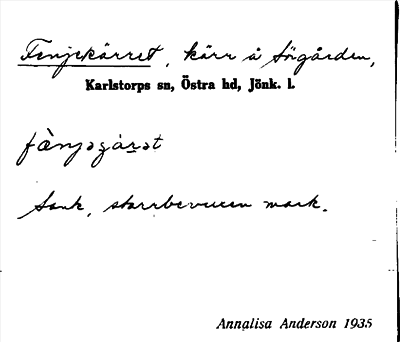 Fenjekärret, kärr å Sörgården,
Karlstorps sn, Östra hd, Jönk. l.
Sank, starrbevuxen mark.
Annalisa Anderson 1935